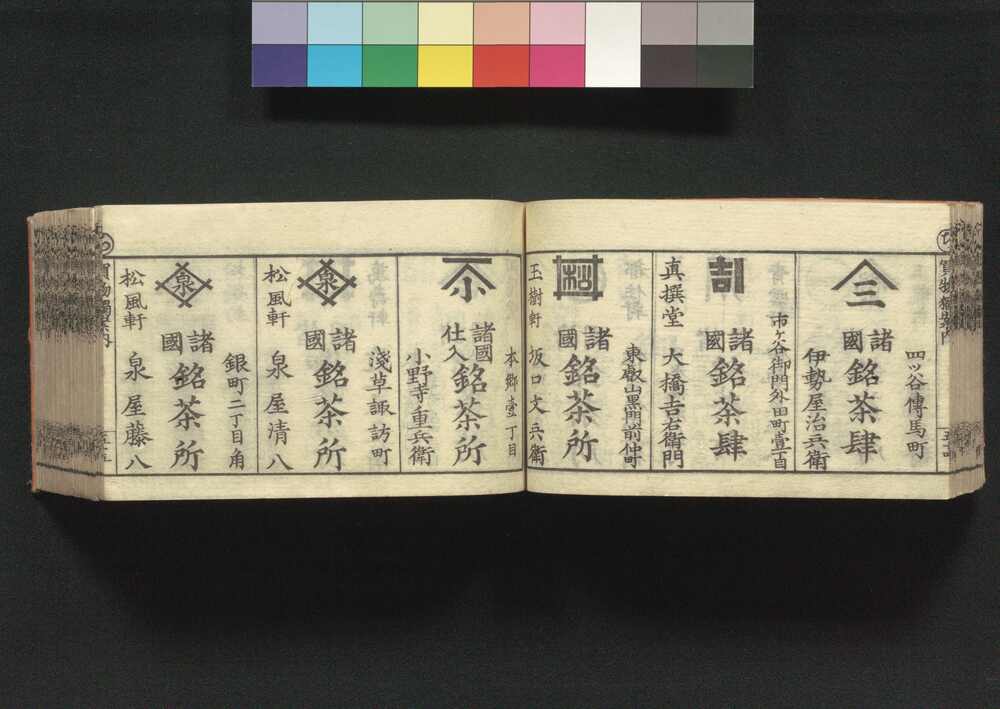 四ッ谷傳馬町
三
諸國
銘茶肆
伊勢屋治兵衛
市ヶ谷御門外田町壹丁目
吉
諸國
銘茶肆
真撰堂
大橋吉右衛門
東叡山黒門前仲町
松
諸國
銘茶所
玉樹軒
坂口文兵衛
本郷壹丁目
諸國
仕入
銘茶所
小野寺重兵衛
淺草諏訪町
泉
諸國
銘茶所
松風軒
泉屋清八
銀町二丁目角
泉
諸國
銘茶所
松風軒
泉屋藤八